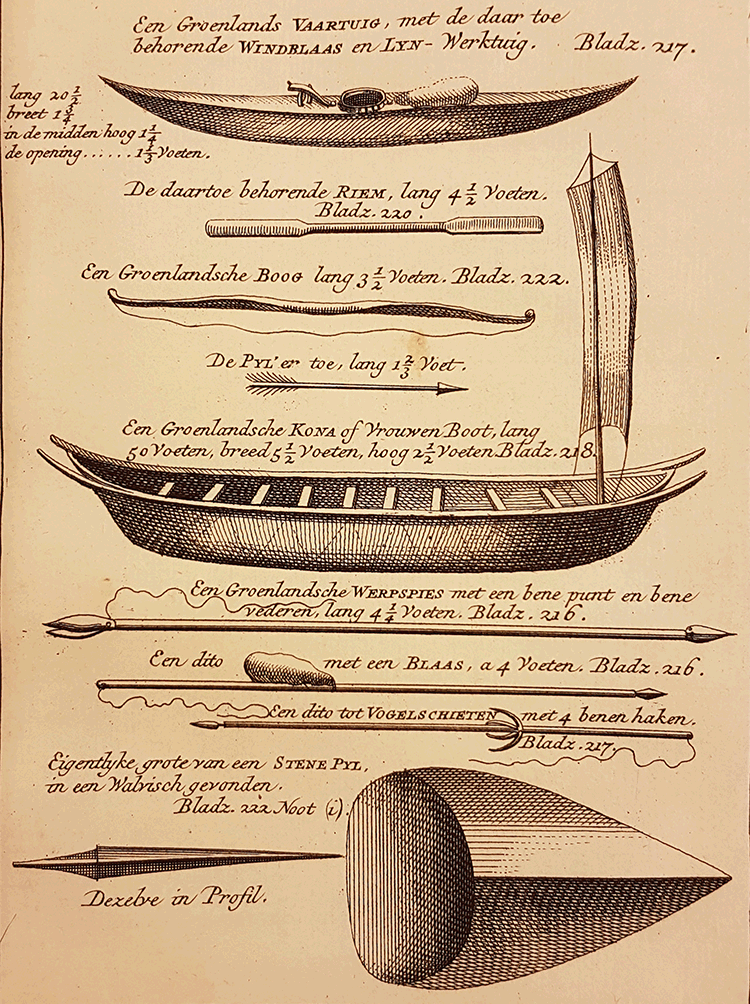 Een Groenlands VAARTUIG, met de daar toe
behorende WINDBLAAS en LYN- Werktuig. Bladz. 217.
lang 20 1/2
breet 1 3/4
in de midden hoog 1 1/4
de opening...... 1 1/3 Voeten.
De daartoe behorende RIEM, lang 4 1/2 Voeten.
Bladz. 220.
Een Groenlandsche BOOG lang 3 1/2 Voeten. Bladz. 222.
De PYL' er toe, lang 1 2/3 Voet.
Een Groenlandsche KONA of Vrouwen Boot, lang
50 Voeten, breed 5 1/2 Voeten, hoog 2 1/2 Voeten Bladz. 218.
Een Groenlandsche WERPSPIES met een bene punt en bene
vederen, lang 4 1/4 Voeten. Bladz. 216.
Een dito met een BLAAS, a 4 Voeten. Bladz. 216.
Een dito tot VOGELSCHIETEN met 4 benen haken.
Bladz. 217.
Eigentlyke grote van een STENE PYL,
in een Walvisch gevonden.
Bladz. 222 Noot (i).
Dezelve in Profil.